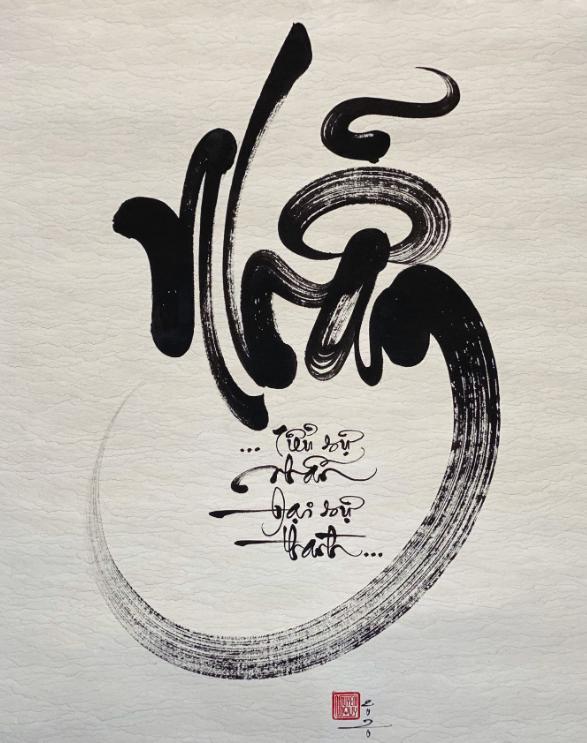 Nhẫn
... Tiểu sự
nhẫn
Đại sự
thành...
2020